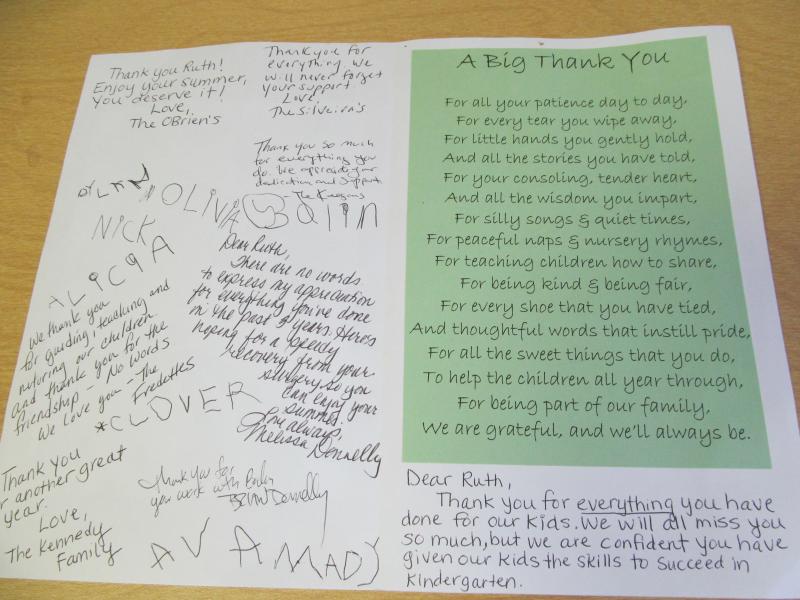 Thank you Ruth!
Enjoy your summer,
You deserve it!
Love,
The OBrien's
Thank you for
everything. We
will never forget
your support
Love
The Silveira's
Thank you so much
for everything you
do. We appreciate your
dedication and support
- The Keegans
DYLAN
OLIVIA
Quinn
NICK
ALiCiA
Dear Ruth,
There are no words
to express my appreciation
for everything you've done
in the past 3 years. Heres
hoping for a speedy
recovery from your
surgery so you
can enjoy your
summer.
Love always,
Melissa Donnelly
We thank you
for guiding, teaching and
nuturing our children.
and thank you for the
friendship - No Words
We love you - The
Fredettes
*CLOVER
Thank you
r another great
year.
Love,
The Kennedy
Family
Thank you for
you work with
Brian Donnelly
AVA
MADY
A Big Thank You
For all your patience day to day,
For every tear you wipe away,
For little hands you gently hold,
And all the stories you have told,
For your consoling, tender heart,
And all the wisdom you impart,
For silly songs & quiet times,
For peaceful naps & nursery rhymes,
For teaching children how to share,
For being kind & being fair,
For every shoe that you have tied,
And thoughtful words that instill pride,
For all the sweet things that you do,
To help the children all year through,
For being part of our family,
We are grateful, and we'll always be.
Dear Ruth,
Thank you for everything you have
done for our kids. We will all miss you
so much, but we are confident you have
given our kids the skills to succeed in
Kindergarten.